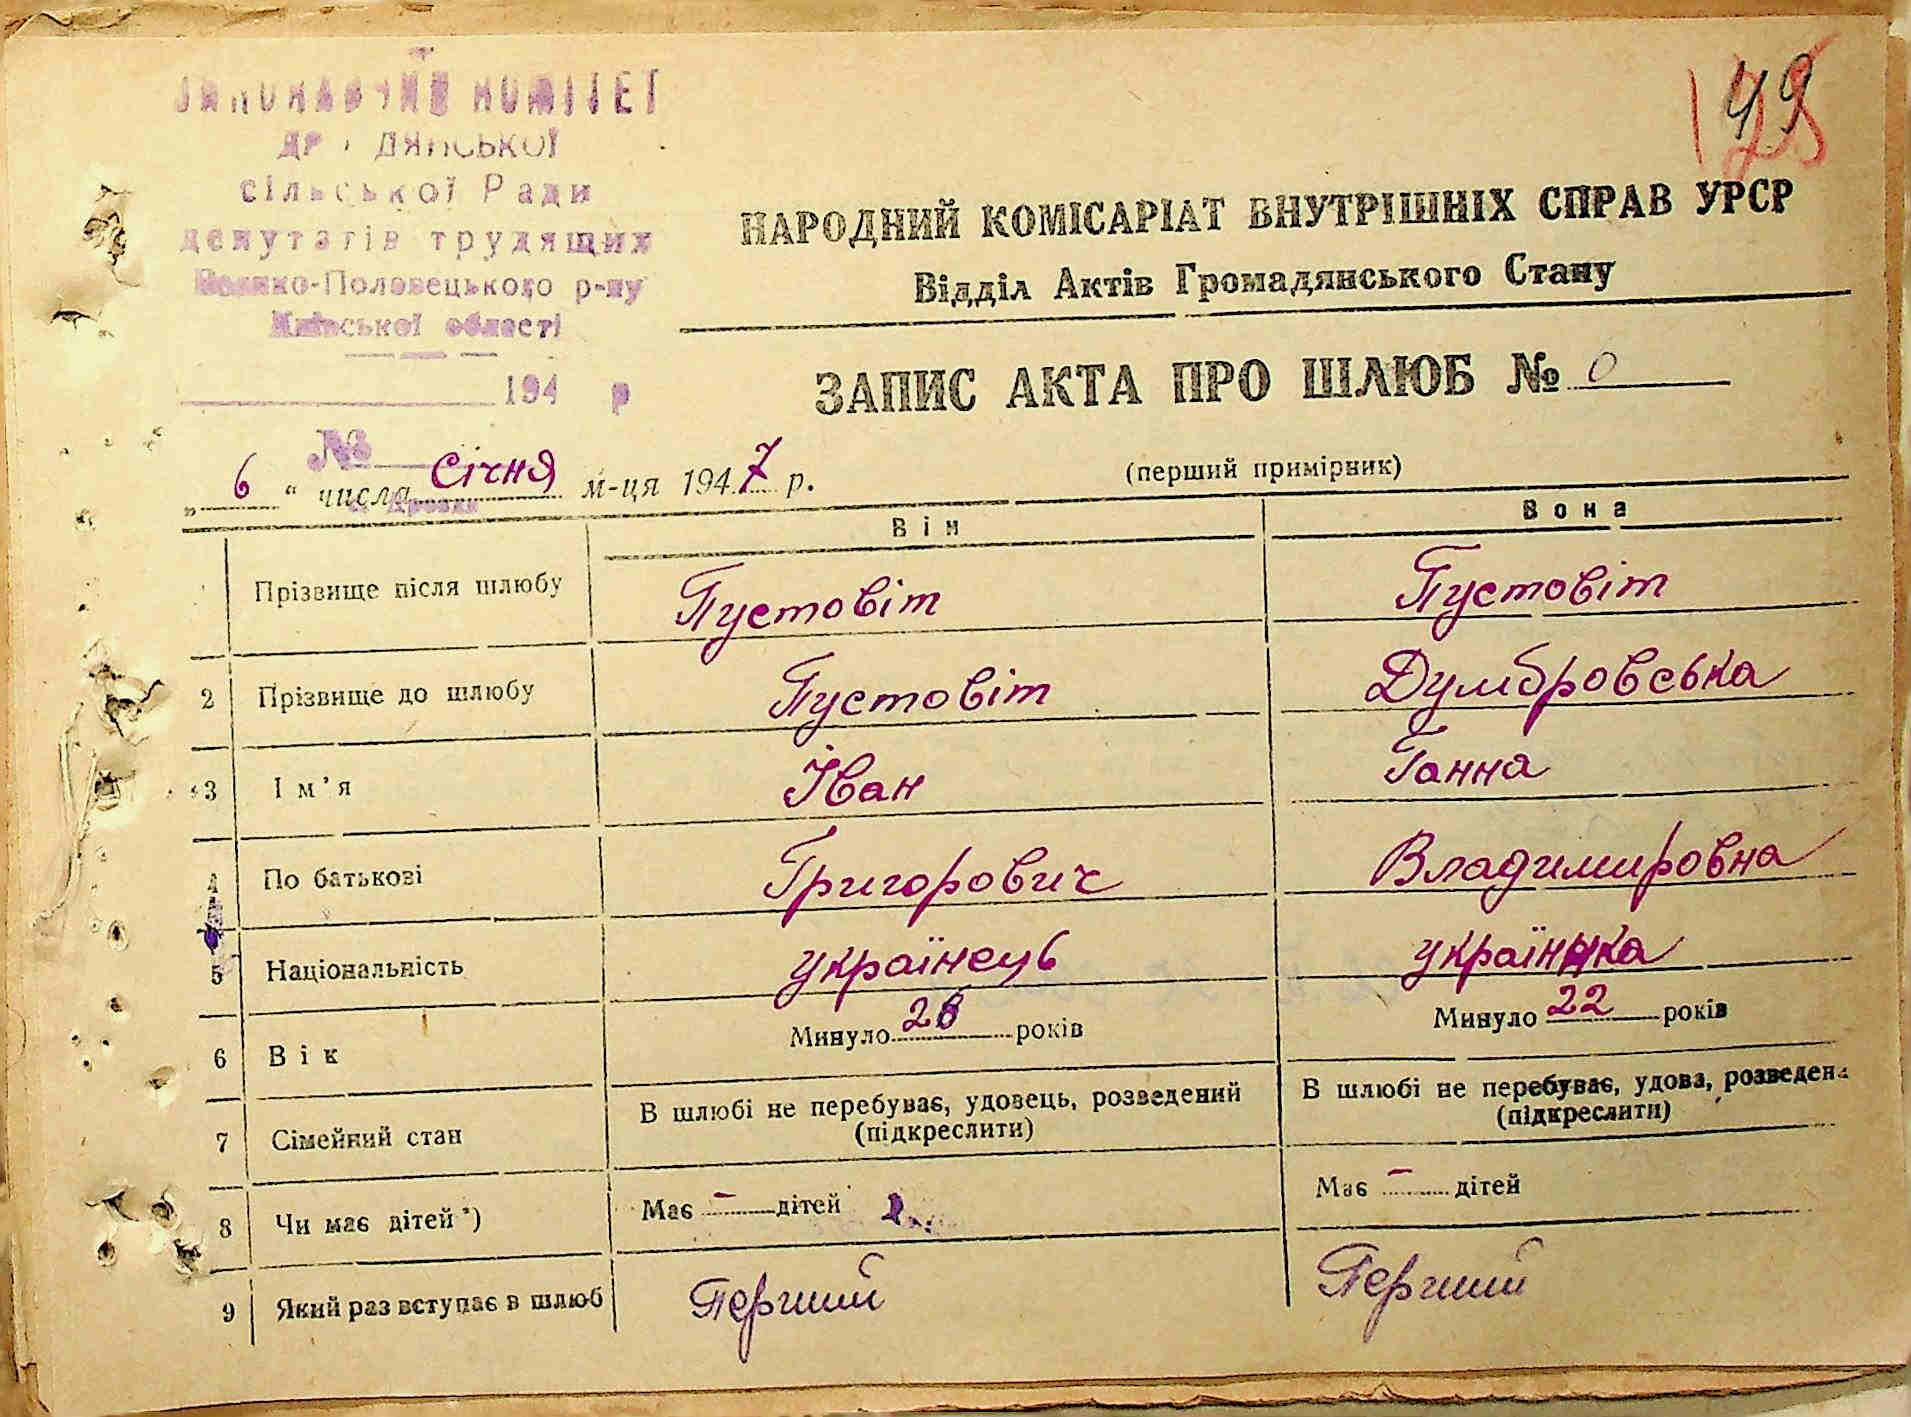 ВИКОНАВЧИЙ КОМІТЕТ
сільської Ради
депутатів трудящих
Велико-Половецького р-ну
Київської області
194 р
№
49
125
НАРОДНИЙ КОМІСАРІАТ ВНУТРІШНІХ СПРАВ УРСР
Відділ Актів Громадянського Стану
ЗАПИС АКТА ПРО ШЛЮБ №
„ 6 “ числа січня м-ця 1947 р.
(перший примірник)
Він Вона
Прізвище після шлюбу Пустовіт Пустовіт
2 Прізвище до шлюбу Пустовіт Думбровська
3 Ім'я Іван Ганна
4 По батькові Григорович Владимировна
5 Національність українець українка
6 Вік Минуло років Минуло 22 років
7 Сімейний стан В шлюбі не перебуває, удовець, розведений (підкреслити) В шлюбі не перебуває, удова, розведена (підкреслити)
8 Чи має дітей*) Має - дітей Має - дітей
9 Який раз вступає в шлюб Перший Перший